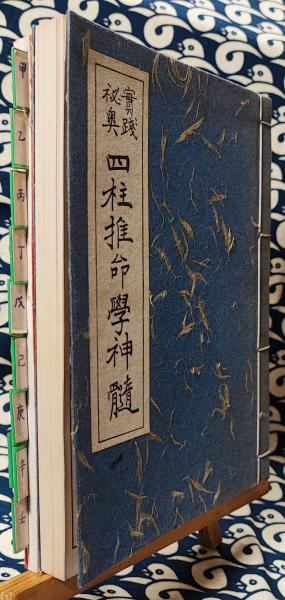 實踐
秘奥
四柱推命學神髓
甲
乙
丙
丁
戊
己
庚
辛
壬